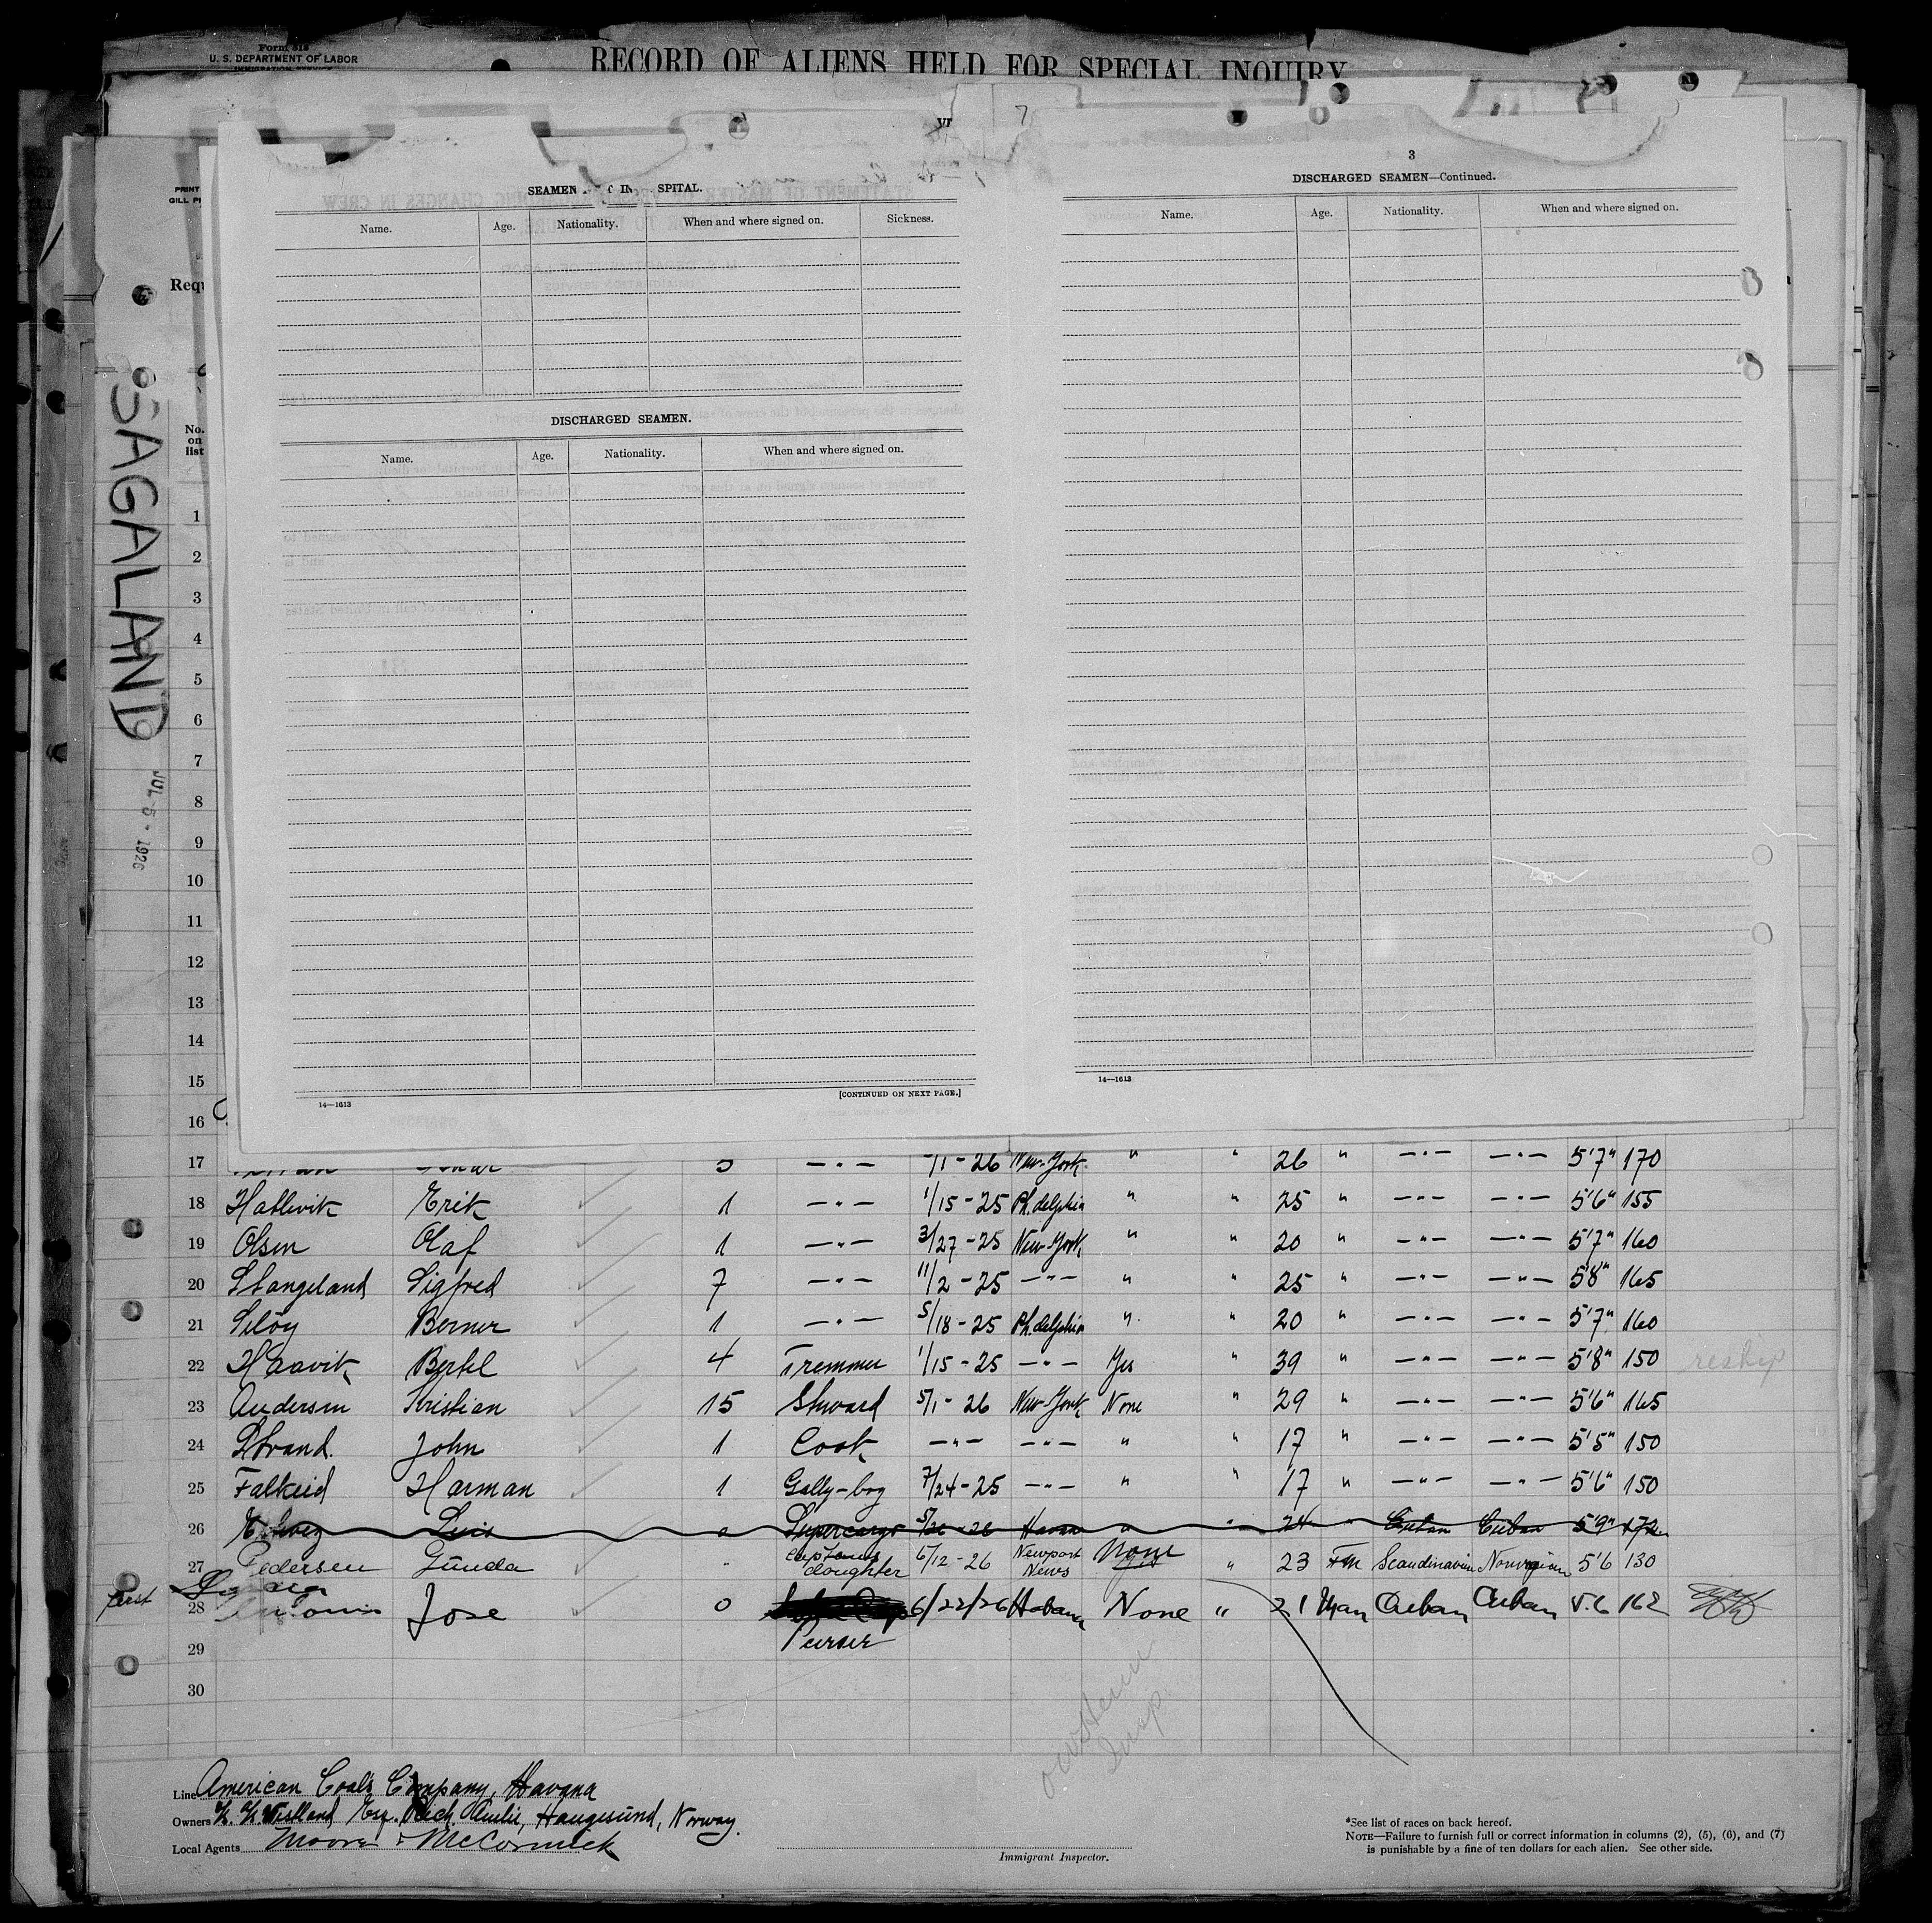 Form 318
U. S. DEPARTMENT OF LABOR
IMMIGRATION SERVICE
RECORD OF ALIENS HELD FOR SPECIAL INQUIRY
PRINT
GILL
Requ
SAGALAND
JUL 5 - 1926
No. on list
1
2
3
4
5
6
7
8
9
10
11
12
13
14
15
16
SEAMEN IN SPITAL.
Name. Age. Nationality. When and where signed on. Sickness.
DISCHARGED SEAMEN.
Name. Age. Nationality. When and where signed on.
14—1613
[CONTINUED ON NEXT PAGE.]
3
DISCHARGED SEAMEN—Continued.
Name. Age. Nationality. When and where signed on.
14—1613
17 —"— 1 - 26 New-York " " 26 " —"— —"— 5'7" 170
18 Hatlevik Erik 1 —"— 1/15 - 25 Ph.delphia " " 25 " —"— —"— 5'6" 155
19 Olsen Olaf 1 —"— 3/27 - 25 New-York " " 20 " —"— —"— 5'7" 160
20 Stangeland Sigfred 7 —"— 11/2 - 25 —"— " " 25 " —"— —"— 5'8" 165
21 Selöy Berner 1 —"— 5/18 - 25 Ph.delphia " " 20 " —"— —"— 5'7" 160
22 Haavik Bertel 4 Tremmer 1/15 - 25 —"— Yes " 39 " —"— —"— 5'8" 150 reship
23 Andersen Kristian 15 Steward 5/1 - 26 New-York None " 29 " —"— —"— 5'6" 165
24 Strand. John 1 Cook —"— —"— " " 17 " —"— —"— 5'5" 150
25 Falkeid Harman 1 Gally-boy 7/24 - 25 —"— " " 17 " —"— —"— 5'6" 150
26 Luis Supercargo 5/26 - 26 Havan " " 24 " Cuban Cuban 5'9" 172
27 Pedersen Gunda " captains daughter 6/12 - 26 Newport News None " 23 Fm Scandinavian Norwegian 5'6 130
first
28 Jose 0 6/22/26 Habana None " 21 Man Cuban Cuban 5.6 162
Purser
29
30
Insp.
Line American Coals Company, Havana
Owners Vestland Esq. Haugesund, Norway.
Local Agents Moore & McCormick
Immigrant Inspector.
*See list of races on back hereof.
NOTE—Failure to furnish full or correct information in columns (2), (5), (6), and (7)
is punishable by a fine of ten dollars for each alien. See other side.